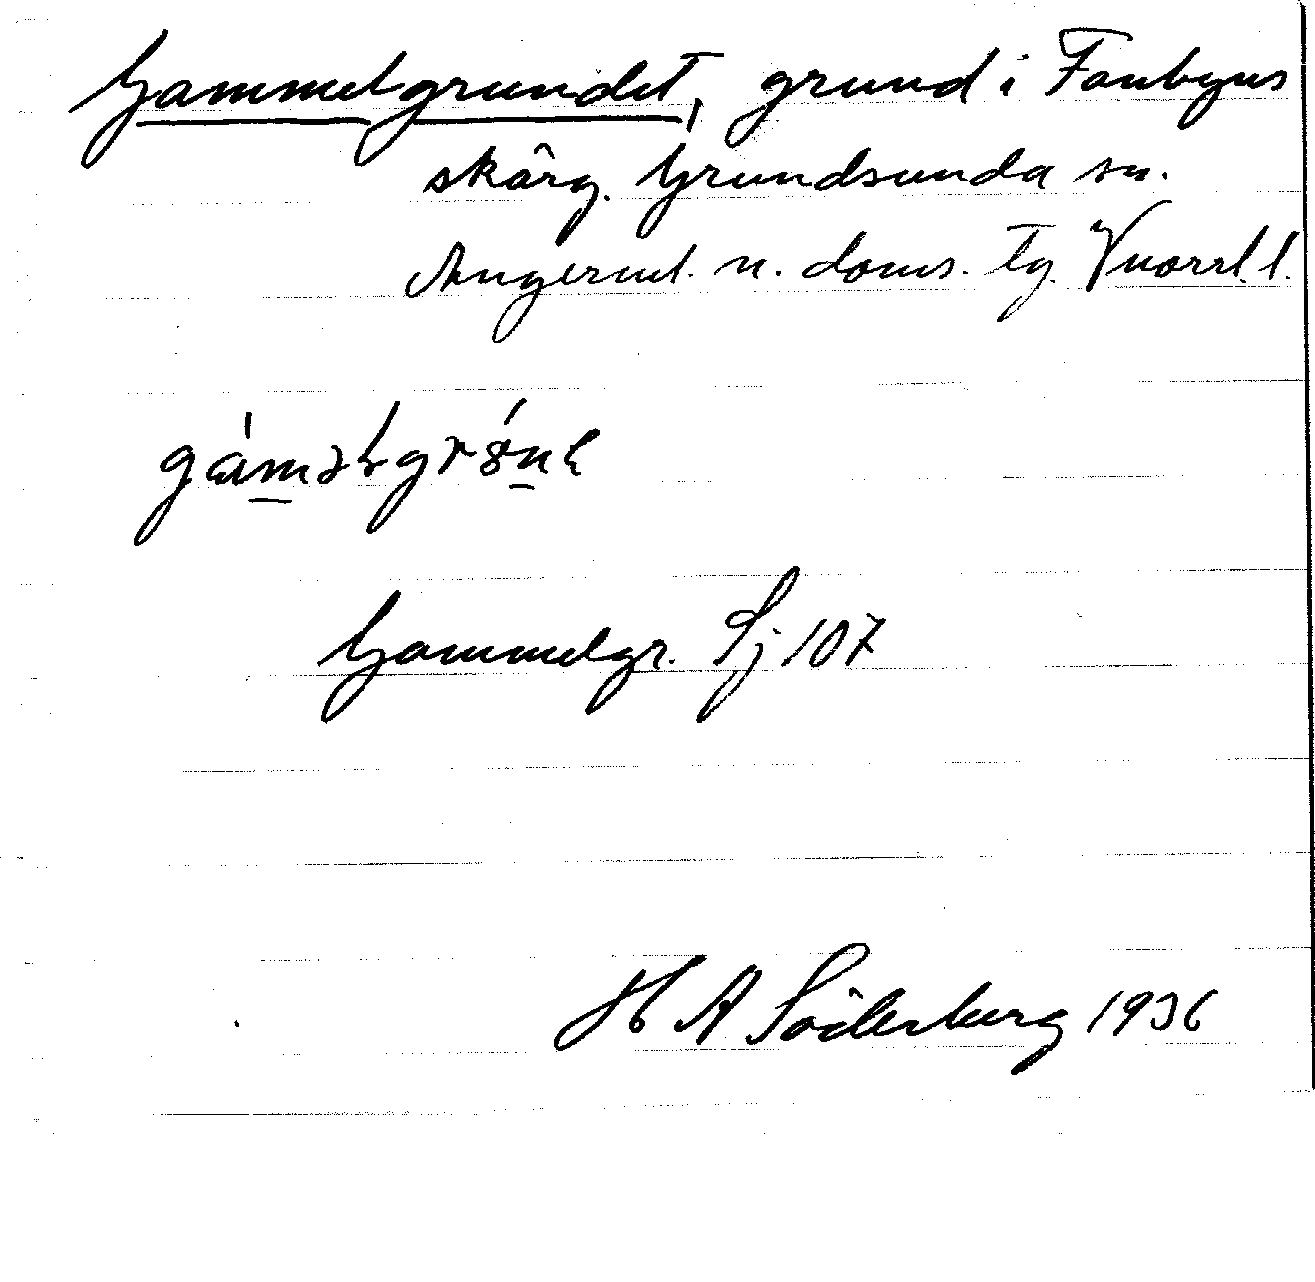 Gammelgrundet, grund i Fanbyns
skärg. Grundsunda sn.
Ångerml. n. doms. tg. Vnorrl. l.
Gammelgr. Sj 107
H A Söderberg 1936